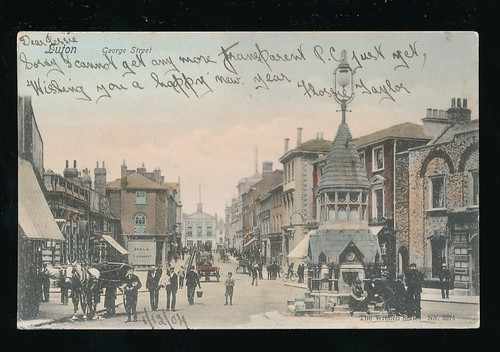 Dear Jessie
Luton George Street
Sorry I cannot get any more transparent P.C. just yet,
Wishing you a happy new year Florrie Taylor
1/2/04
The Wrench Series No. 8974